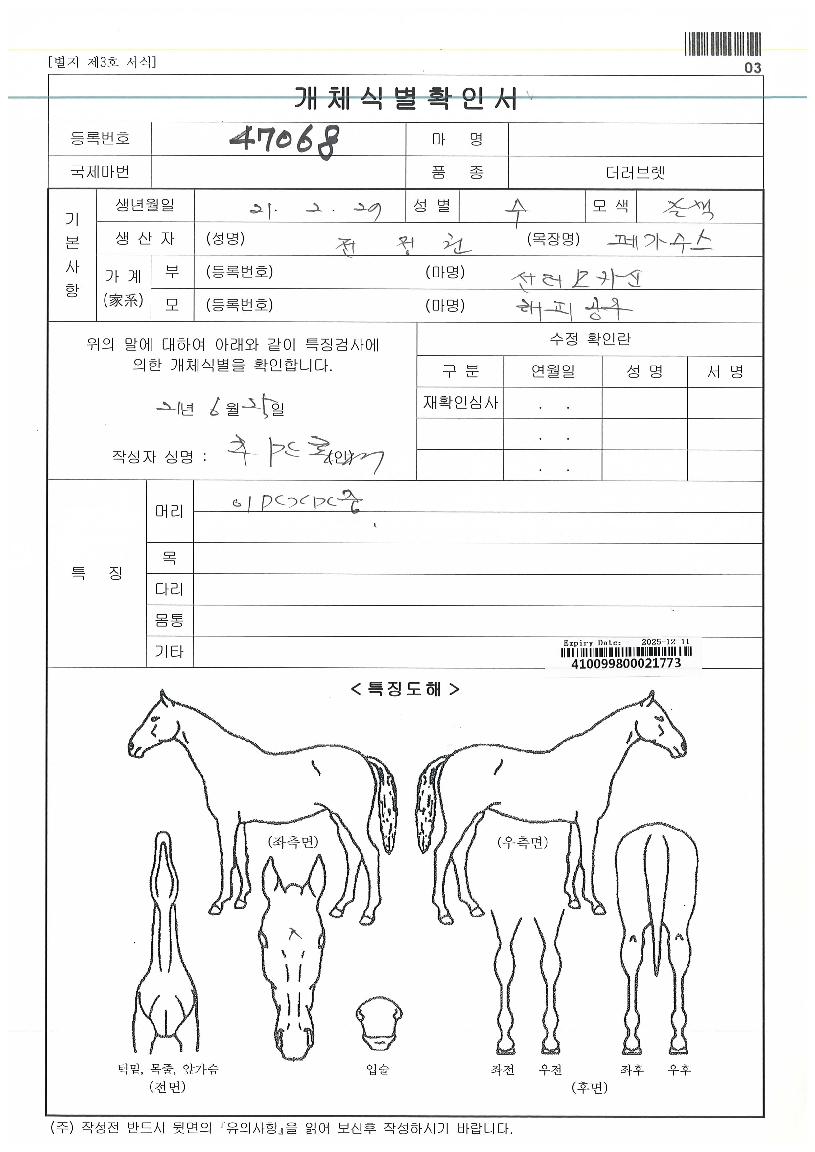 [별지 제3호 서식]
03
개체식별확인서
등록번호 47068 마 명
국제마번 품 종 더러브렛
기본사항
생년월일 21. 2. 29 성 별 수 모 색
생 산 자 (성명) 전 정 (목장명) 페가수스
가 계 (家系) 부 (등록번호) (마명) 선러
모 (등록번호) (마명) 해피
위의 말에 대하여 아래와 같이 특징검사에
의한 개체식별을 확인합니다.
21년 6월 25일
작성자 성명 : 추 (인)
수정 확인란
구 분 연월일 성 명 서 명
재확인심사 . .
. .
. .
특 징
머리
목
다리
몸통
기타
Expiry Date: 2025-12-11
410099800021773
<특징도해>
(좌측면) (우측면)
턱밑, 목줄, 앞가슴 입술 좌전 우전 좌후 우후
(전면) (후면)
(주) 작성전 반드시 뒷면의 『유의사항』을 읽어 보신후 작성하시기 바랍니다.